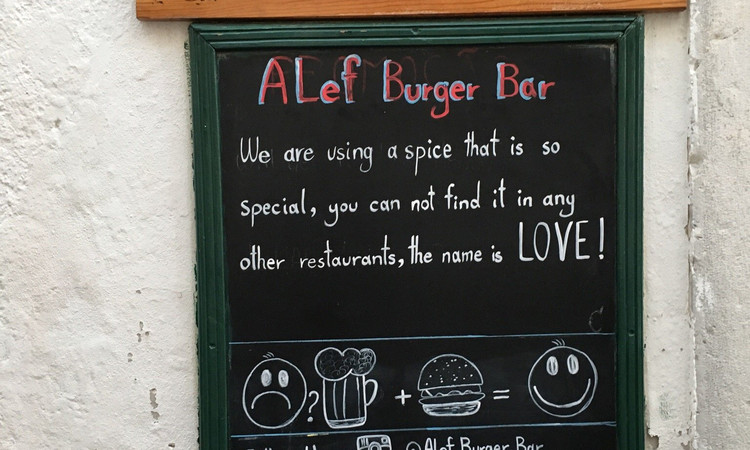 ALef Burger Bar
We are using a spice that is so
special, you can not find it in any
other restaurants, the name is LOVE!
? + =
@Alef Burger Bar